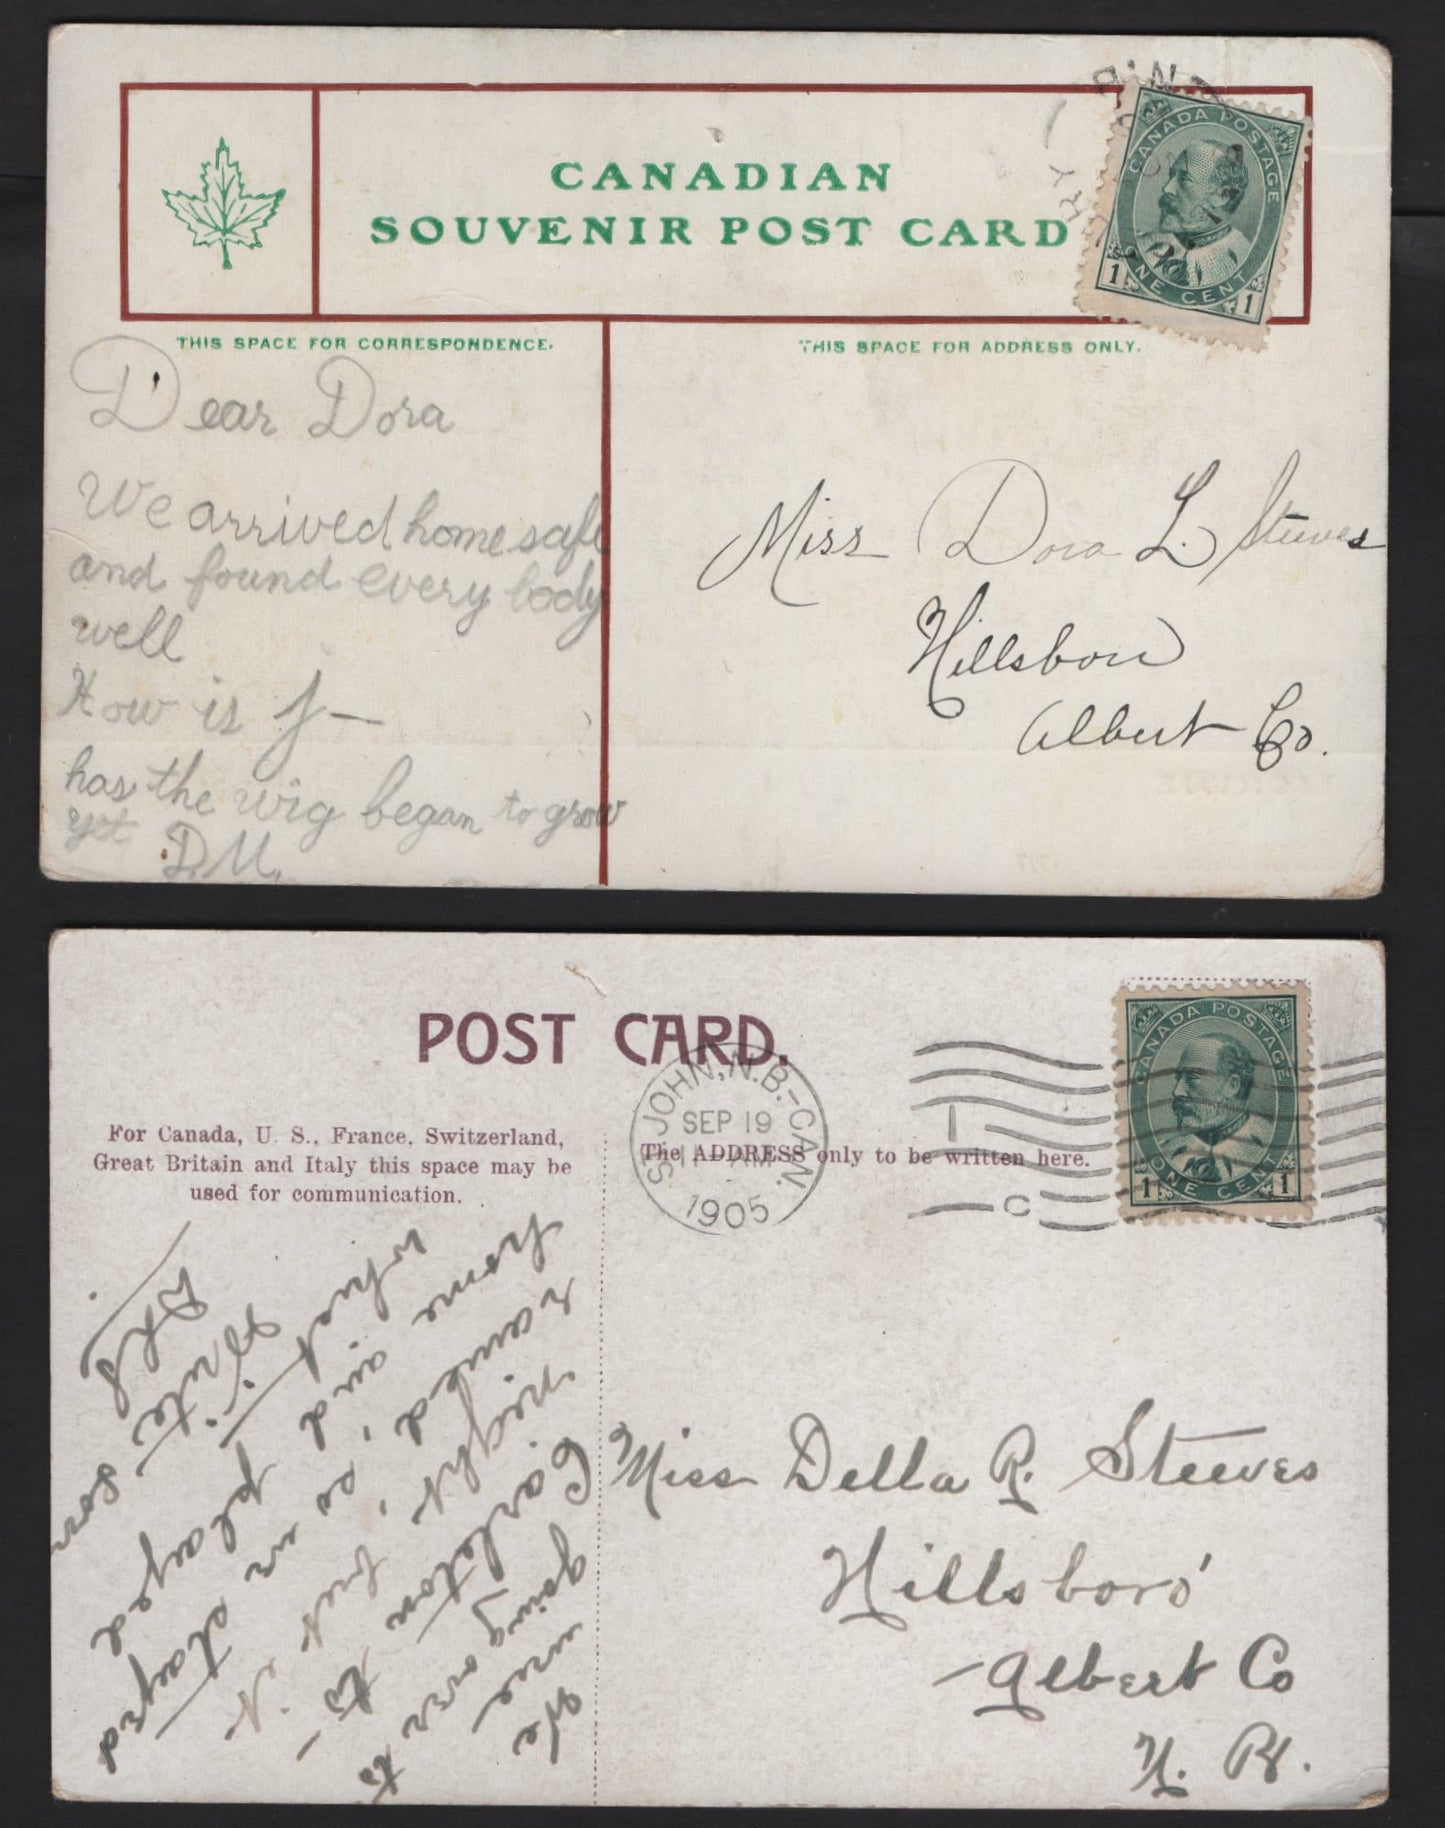 CANADIAN
SOUVENIR POST CARD
CANADA POSTAGE
ONE CENT
1 1
THIS SPACE FOR CORRESPONDENCE.
THIS SPACE FOR ADDRESS ONLY.
Dear Dora
We arrived home safe
and found every body
well
How is J—
has the wig began to grow
yet
D.M.
Miss Dora L. Steeves
Hillsboro
Albert Co.
POST CARD.
For Canada, U. S., France, Switzerland,
Great Britain and Italy this space may be
used for communication.
The ADDRESS only to be written here.
ST. JOHN, N.B.-CAN.
SEP 19
11 - AM
1905
C
CANADA POSTAGE
ONE CENT
1 1
We
were
going over to
Carleton to-
night, but it
rained, so we stayed
home and played
whist
Write soon
Miss Della R. Steeves
Hillsboro'
Albert Co
N. B.